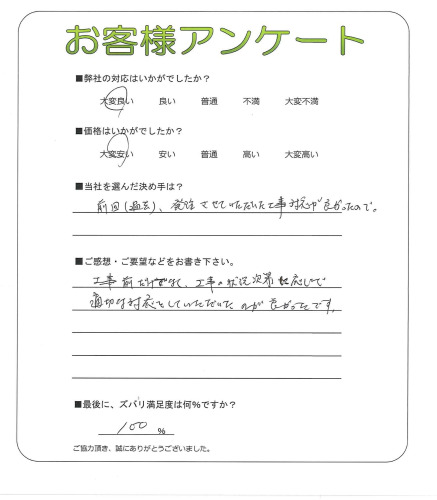 お客様アンケート
■弊社の対応はいかがでしたか?
大変良い 良い 普通 不満 大変不満
■価格はいかがでしたか?
大変安い 安い 普通 高い 大変高い
■当社を選んだ決め手は?
前回(過去)、発注させていただいた工事対応が良かったので。
■ご感想・ご要望などをお書き下さい。
工事前だけでなく、工事の状況次第に応じて
適切な対応をしていただいたのが良かったです。
■最後に、ズバリ満足度は何%ですか?
100 %
ご協力頂き、誠にありがとうございました。